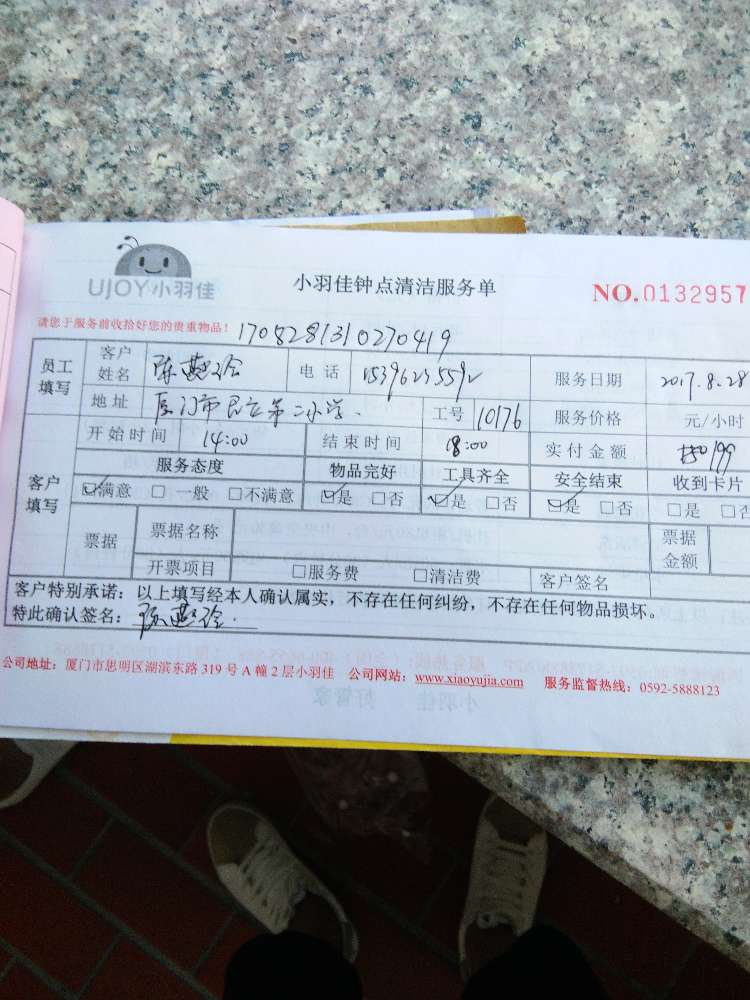 UJOY小羽佳 小羽佳钟点清洁服务单 NO.0132957
请您于服务前收拾好您的贵重物品! 1708281310270419
员工填写 客户姓名 陈燕玲 电话 15396235592 服务日期 2017.8.28
地址 厦门市 第二小学. 工号 10176 服务价格 元/小时
开始时间 14:00 结束时间 18:00 实付金额 199
客户填写 服务态度 物品完好 工具齐全 安全结束 收到卡片
☑满意 □一般 □不满意 ☑是 □否 ☑是 □否 ☑是 □否 □是 □否
票据 票据名称 票据金额
开票项目 □服务费 □清洁费 客户签名
客户特别承诺:以上填写经本人确认属实,不存在任何纠纷,不存在任何物品损坏。
特此确认签名: 陈燕玲
公司地址:厦门市思明区湖滨东路 319 号 A 幢 2 层小羽佳 公司网站:www.xiaoyujia.com 服务监督热线:0592-5888123